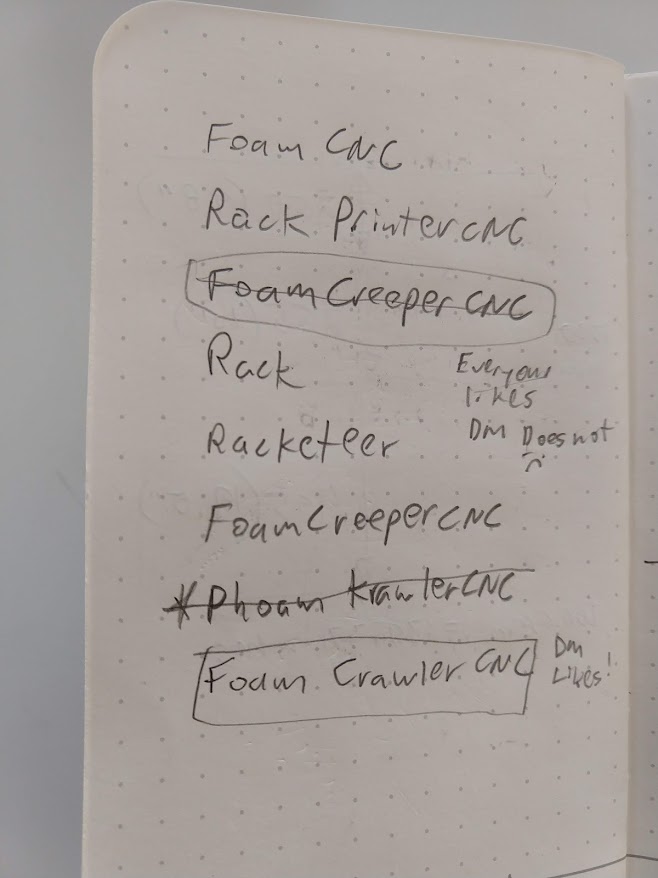 Foam CNC
Rack Printer CNC
FoamCreeper CNC
Rack
Everyone
likes
Racketeer
DM Does not
FoamCreeperCNC
*Phoam KrawlerCNC
Foam Crawler CNC
DM
Likes!